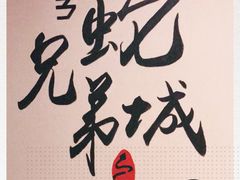 蛇
兄弟城